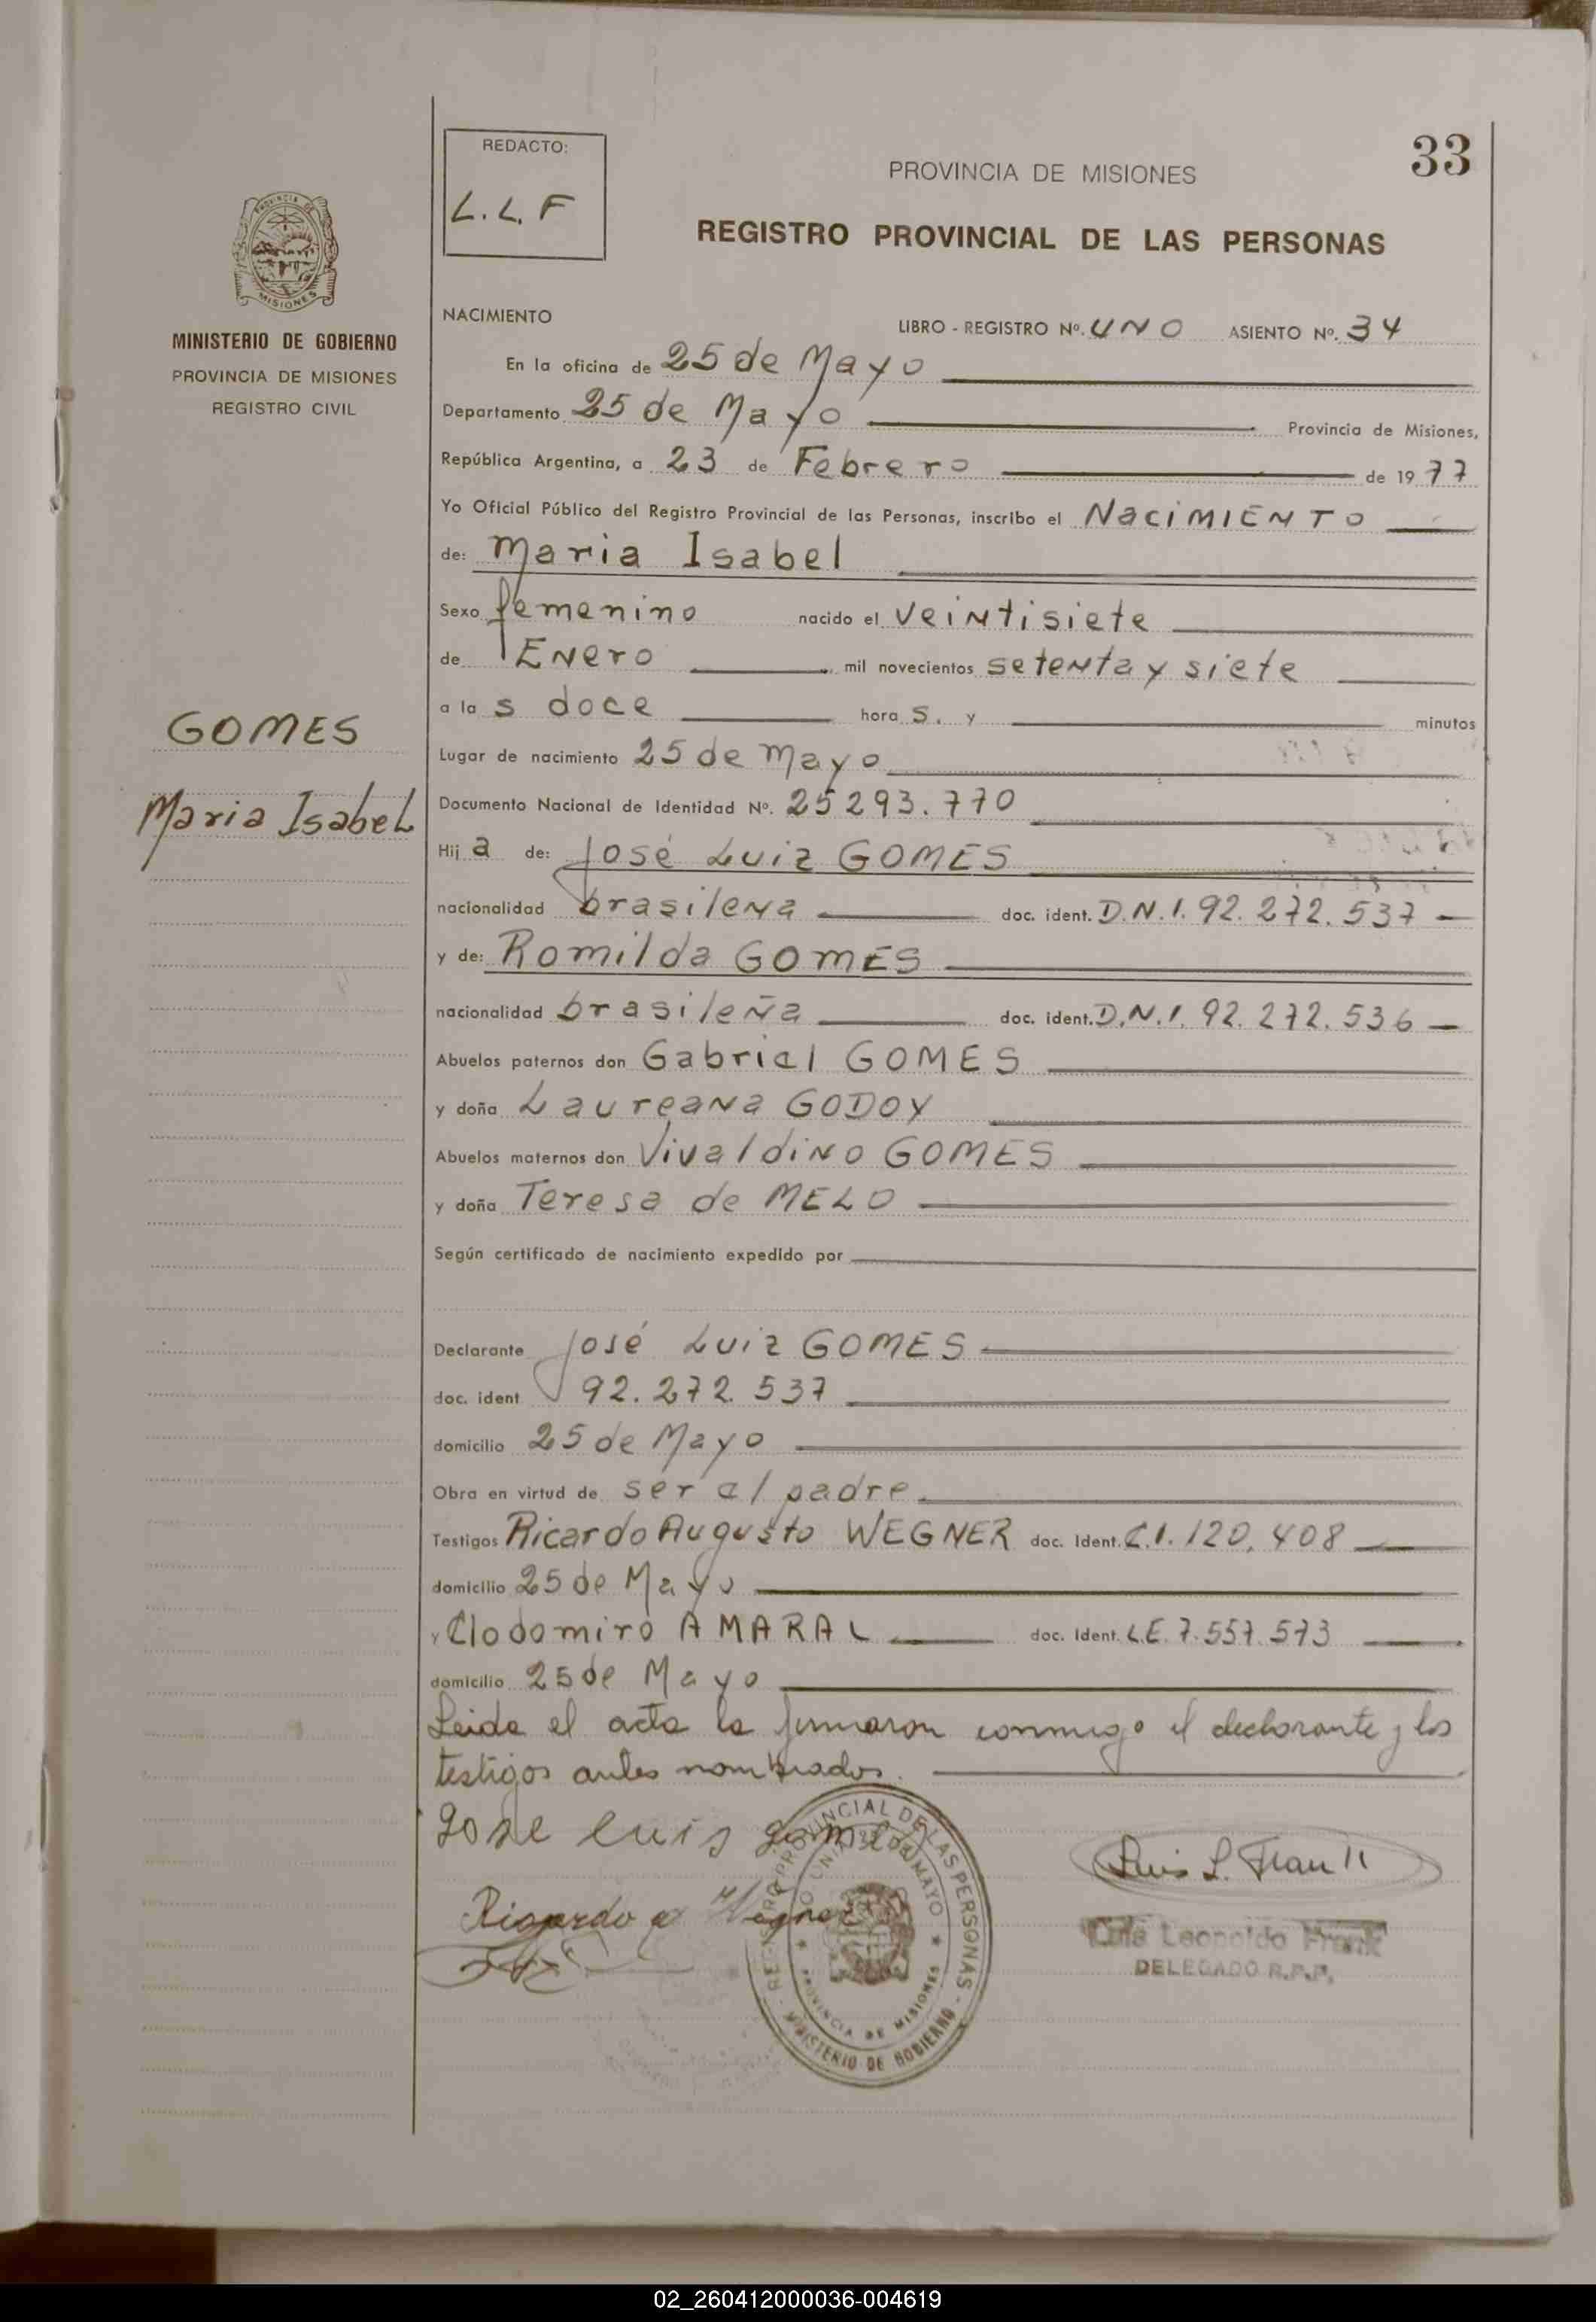 33
REDACTO:
L.L.F
PROVINCIA DE MISIONES
REGISTRO PROVINCIAL DE LAS PERSONAS
MINISTERIO DE GOBIERNO
PROVINCIA DE MISIONES
REGISTRO CIVIL
GOMES
Maria Isabel
NACIMIENTO
LIBRO - REGISTRO Nº. UNO ASIENTO Nº. 34
En la oficina de 25 de Mayo
Departamento 25 de Mayo Provincia de Misiones,
República Argentina, a 23 de Febrero de 1977
Yo Oficial Público del Registro Provincial de las Personas, inscribo el NaciMIENTO
de: Maria Isabel
Sexo femenino nacido el veintisiete
de Enero mil novecientos setenta y siete
a la s doce hora s. y minutos
Lugar de nacimiento 25 de Mayo
Documento Nacional de Identidad Nº. 25293.770
Hij a de: José Luiz GOMES
nacionalidad brasilena doc. ident. D.N.I. 92.272.537
y de: Romilda GOMES
nacionalidad brasileña doc. ident. D.N.I. 92.272.536
Abuelos paternos don Gabriel GOMES
y doña Laureana GODOY
Abuelos maternos don Vivaldino GOMES
y doña Teresa de MELO
Según certificado de nacimiento expedido por
Declarante José Luiz GOMES
doc. ident 92.272.537
domicilio 25 de Mayo
Obra en virtud de ser el padre
Testigos Ricardo Augusto WEGNER doc. Ident. C.I. 120.408
domicilio 25 de Mayo
y Clodomiro AMARAL doc. Ident. L.E. 7.557.573
domicilio 25 de Mayo
Leida el acta la firmaron conmigo el declarante y los
testigos antes nombrados.
Jose luis gomes
Ricardo a Wegner
Luis L. Frank
Luis Leopoldo Frank
DELEGADO R.P.P.
REGISTRO PROVINCIAL DE LAS PERSONAS - MINISTERIO DE GOBIERNO
PROVINCIA DE MISIONES
02_260412000036-004619